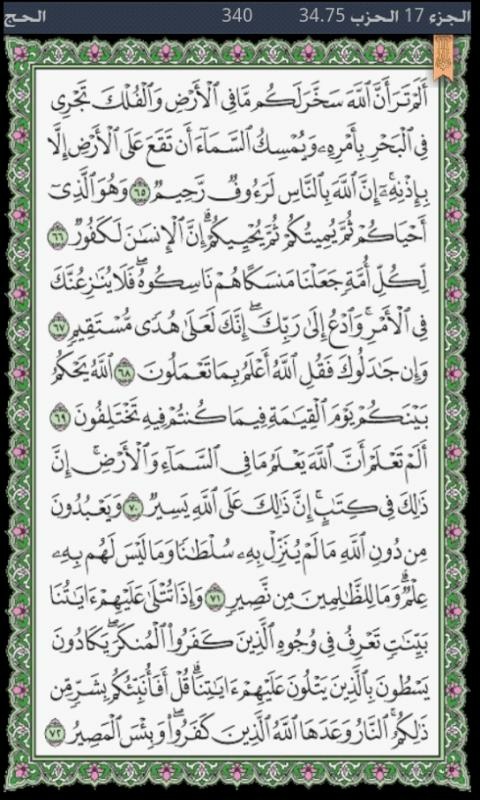 الجزء 17 الحزب 34.75 340 الحـج
أَلَمْ تَرَ أَنَّ ٱللَّهَ سَخَّرَ لَكُم مَّا فِي ٱلْأَرْضِ وَٱلْفُلْكَ تَجْرِى
فِي ٱلْبَحْرِ بِأَمْرِهِۦ وَيُمْسِكُ ٱلسَّمَآءَ أَن تَقَعَ عَلَى ٱلْأَرْضِ إِلَّا
بِإِذْنِهِۦٓ ۗ إِنَّ ٱللَّهَ بِٱلنَّاسِ لَرَءُوفٌ رَّحِيمٌ ٦٥ وَهُوَ ٱلَّذِىٓ
أَحْيَاكُمْ ثُمَّ يُمِيتُكُمْ ثُمَّ يُحْيِيكُمْ ۗ إِنَّ ٱلْإِنسَٰنَ لَكَفُورٌ ٦٦
لِّكُلِّ أُمَّةٍ جَعَلْنَا مَنسَكًا هُمْ نَاسِكُوهُ ۖ فَلَا يُنَٰزِعُنَّكَ
فِي ٱلْأَمْرِ ۚ وَٱدْعُ إِلَىٰ رَبِّكَ ۖ إِنَّكَ لَعَلَىٰ هُدًى مُّسْتَقِيمٍ ٦٧
وَإِن جَٰدَلُوكَ فَقُلِ ٱللَّهُ أَعْلَمُ بِمَا تَعْمَلُونَ ٦٨ ٱللَّهُ يَحْكُمُ
بَيْنَكُمْ يَوْمَ ٱلْقِيَٰمَةِ فِيمَا كُنتُمْ فِيهِ تَخْتَلِفُونَ ٦٩
أَلَمْ تَعْلَمْ أَنَّ ٱللَّهَ يَعْلَمُ مَا فِي ٱلسَّمَآءِ وَٱلْأَرْضِ ۗ إِنَّ
ذَٰلِكَ فِي كِتَٰبٍ ۚ إِنَّ ذَٰلِكَ عَلَى ٱللَّهِ يَسِيرٌ ٧٠ وَيَعْبُدُونَ
مِن دُونِ ٱللَّهِ مَا لَمْ يُنَزِّلْ بِهِۦ سُلْطَٰنًا وَمَا لَيْسَ لَهُم بِهِۦ
عِلْمٌ ۗ وَمَا لِلظَّٰلِمِينَ مِن نَّصِيرٍ ٧١ وَإِذَا تُتْلَىٰ عَلَيْهِمْ ءَايَٰتُنَا
بَيِّنَٰتٍ تَعْرِفُ فِي وُجُوهِ ٱلَّذِينَ كَفَرُوا۟ ٱلْمُنكَرَ ۖ يَكَادُونَ
يَسْطُونَ بِٱلَّذِينَ يَتْلُونَ عَلَيْهِمْ ءَايَٰتِنَا ۗ قُلْ أَفَأُنَبِّئُكُم بِشَرٍّ مِّن
ذَٰلِكُمُ ۗ ٱلنَّارُ وَعَدَهَا ٱللَّهُ ٱلَّذِينَ كَفَرُوا۟ ۖ وَبِئْسَ ٱلْمَصِيرُ ٧٢